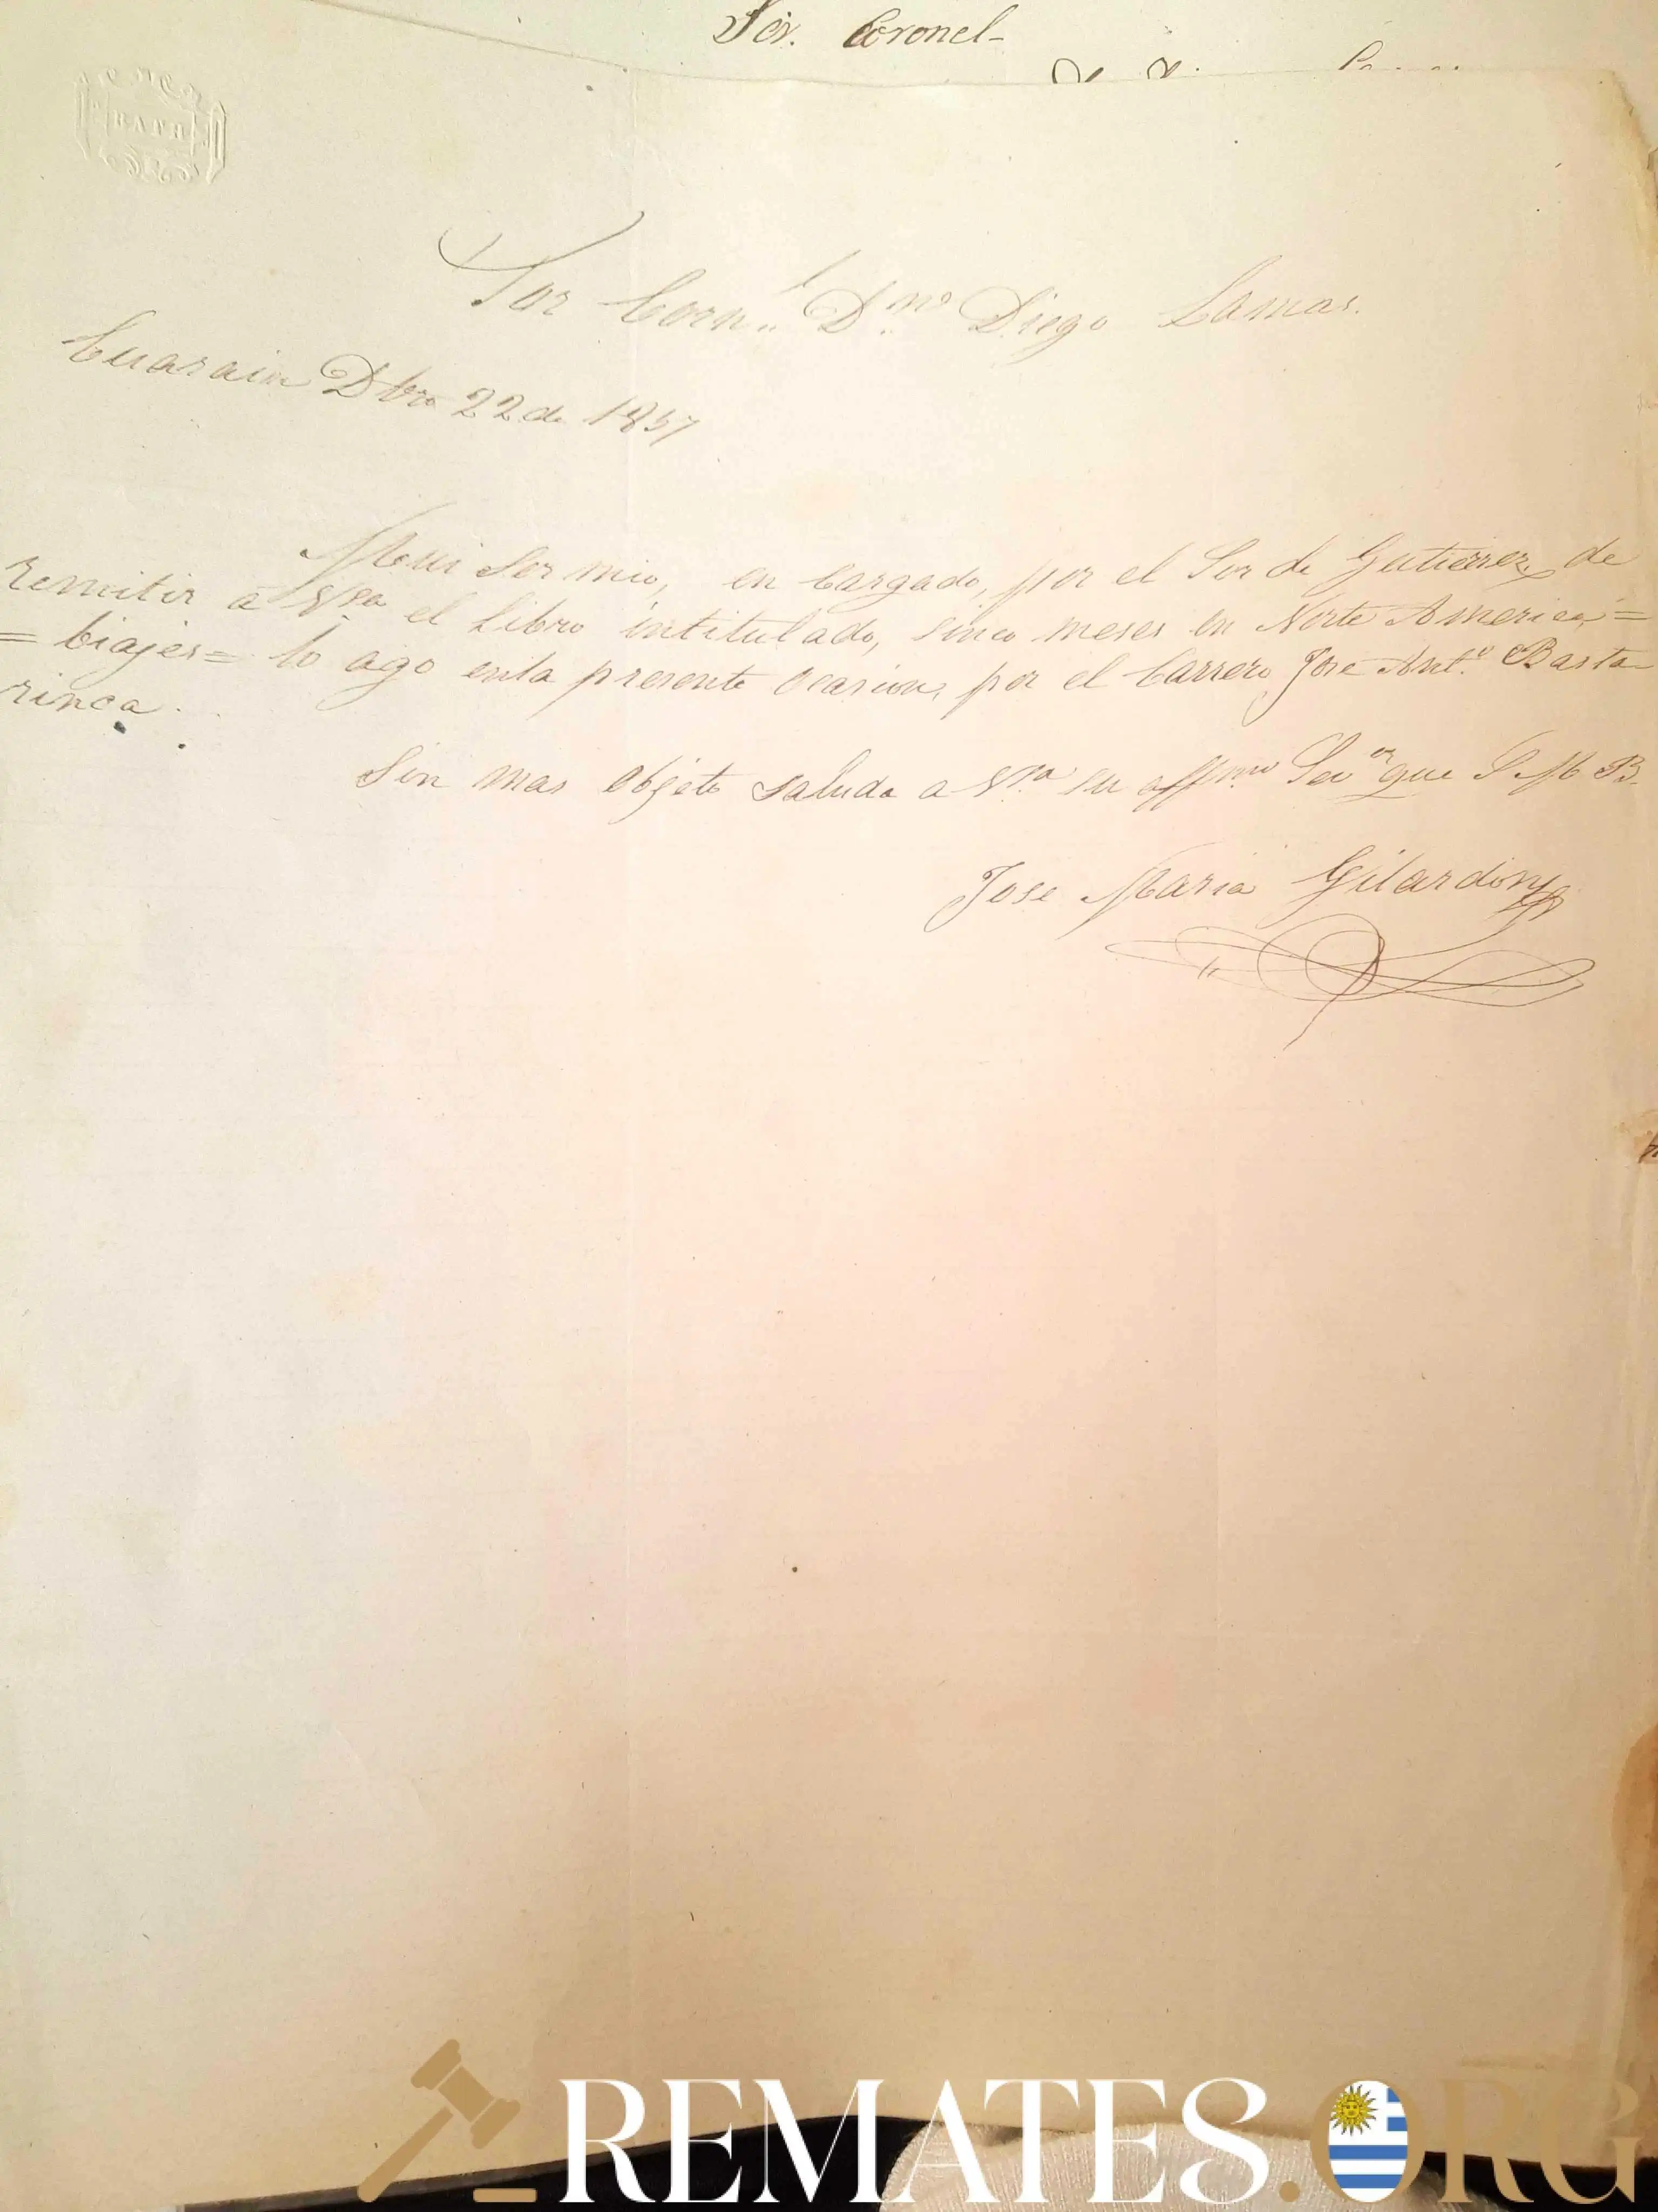 Sor. Coronel
BATH
Sor Corn.l D.no Diego Lamas.
Cuarain Dbro 22 de 1857
Mui Sor mio, en Cargado, por el Sor de Gutierrez de
Remitir a Vsa el Libro intitulado, sinco meses en Norte America =
= biajes = lo ago enla presente Ocasion, por el Carrero Jose Ant.o Basta
rinca.
Sin mas Objeto saluda a Vsa su affmo Servor que S M B.
Jose Maria Gilardony
REMATES.ORG